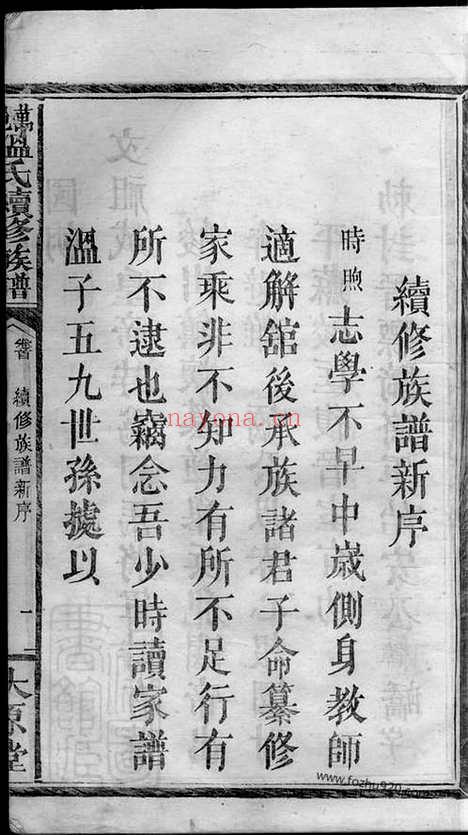 續修族譜新序
時煦志學不早中歲側身教師
適解舘後承族諸君子命纂修
家乘非不知力有所不足行有
所不逮也竊念吾少時讀家譜
溫子五九世孫據以
萬
溫氏續修族譜
續修族譜新序
一
太原堂
nayona.cn
www.fozhu920.com